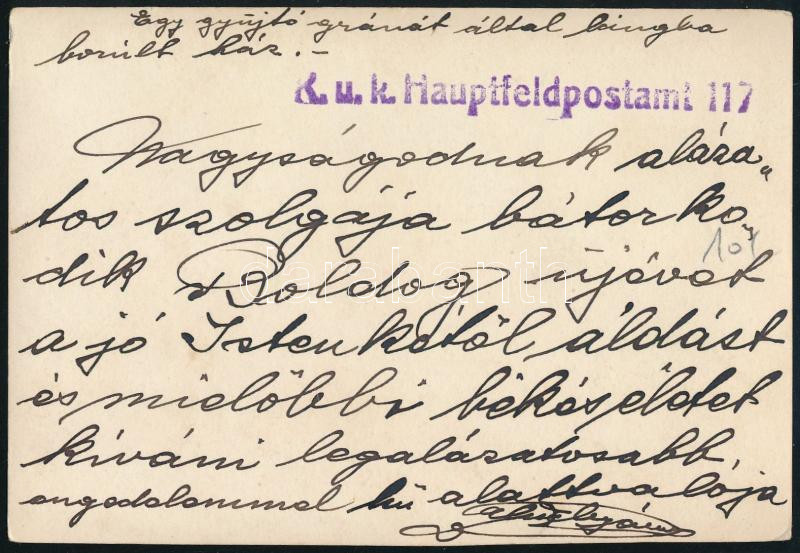 Egy gyujtó gránát által lángba
borult ház.–
K. u. k. Hauptfeldpostamt 117
Nagyságodnak aláza„
tos szolgája bátorko„
dik Boldog újévet
a jó Istenkétől áldást
és mielőbbi békés életet
kíváni legalázatosabb
engedelemmel hű alattvalója
101
darabanth